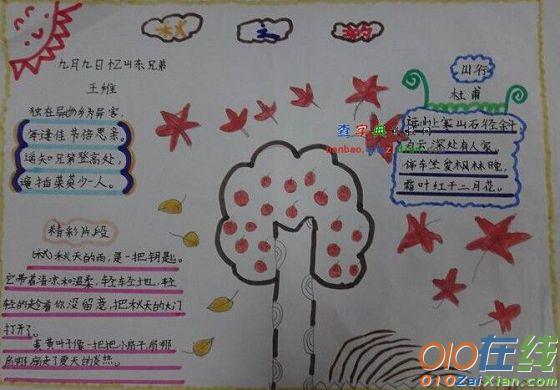 秋 主 题
九月九日忆山东兄弟
王维
独在异乡为异客，
每逢佳节倍思亲。
遥知兄弟登高处，
遍插茱萸少一人。
山行
杜甫
远山上寒山石径斜
白云深处有人家。
停车坐爱枫林晚，
霜叶红于二月花。
查字典
banbao.
精彩片段
秋天的雨，是一把钥匙。
它带着清凉和温柔，轻轻地，轻
轻的趁着你没留意，把秋天的大门
打开了。
黄黄叶子像一把把小扇子扇那
扇那扇走了夏天的炎热。
010在线
010ZaiXian.com